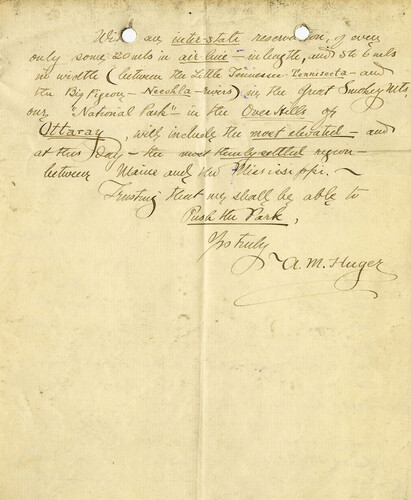 With an inter-state reservation, of even
only some 20 mls in air-line - in length, and 5 to 8 mls
in width (between the Little Tennessee - Tennisseta - and
the Big Pigeon - Neeohla - rivers) in the Great Smokey Mts,
our "National Park" - in the Over Hills of
Ottaray, will include the most elevated - and
at this day - the most thinly settled region -
between Maine and the Mississippi. -
Trusting that we shall be able to
Push the Park,
Yrs truly
A. M. Huger